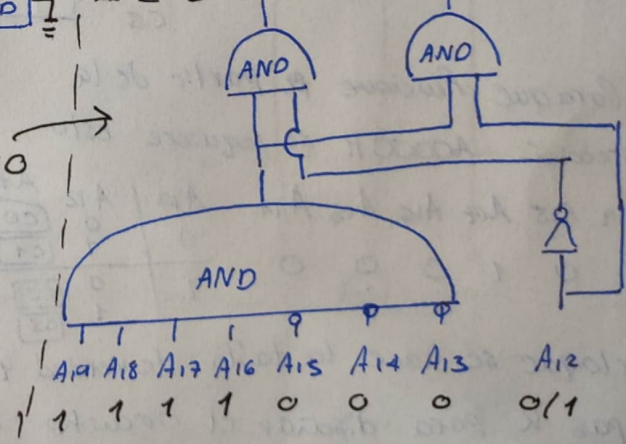 AND AND
0
AND
A19 A18 A17 A16 A15 A14 A13 A12
1 1 1 1 0 0 0 0/1